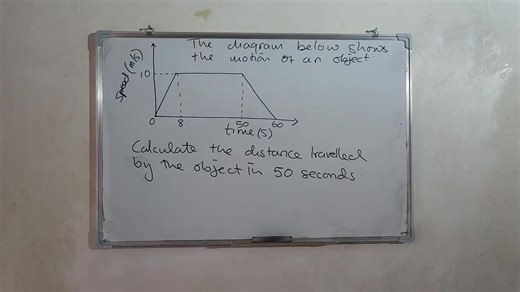 The diagram below shows
the motion of an object.
Speed (m/s)
10
0 8 50 60
time (s)
Calculate the distance travelled
by the object in 50 seconds.